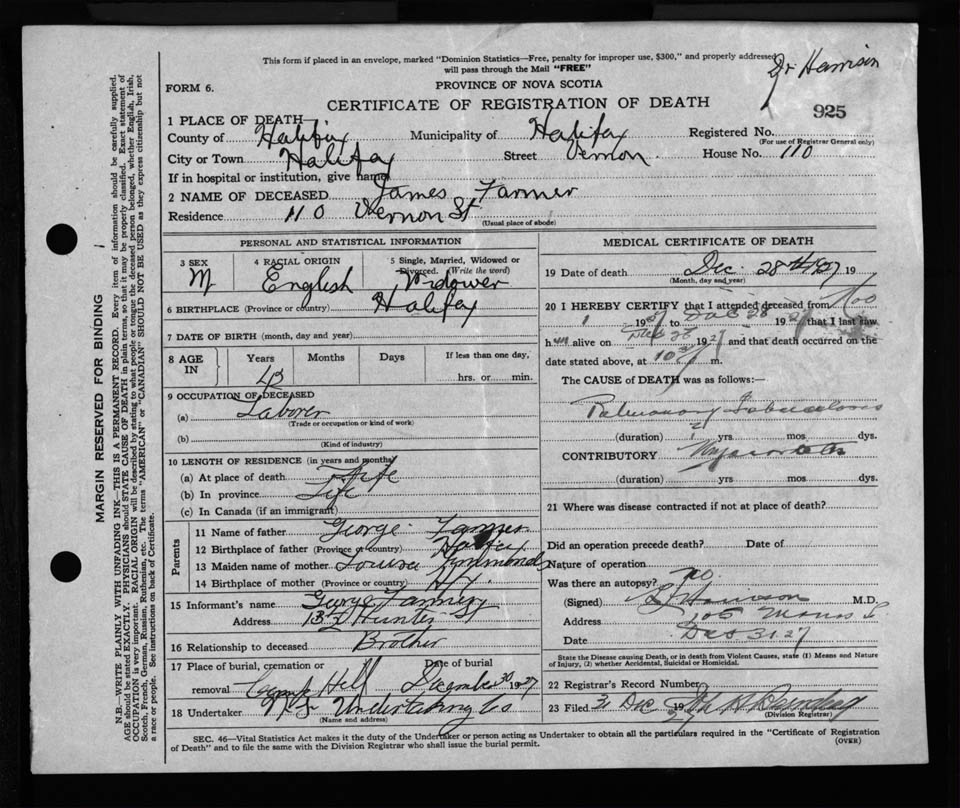 This form if placed in an envelope, marked "Dominion Statistics—Free, penalty for improper use, $300," and properly addressed
will pass through the Mail "FREE"
Dr Harrison
FORM 6.
PROVINCE OF NOVA SCOTIA
CERTIFICATE OF REGISTRATION OF DEATH
925
1 PLACE OF DEATH
County of Halifax Municipality of Halifax Registered No.
(For use of Registrar General only)
City or Town Halifax Street Vernon House No. 110
If in hospital or institution, give name
2 NAME OF DECEASED James Farmer
Residence 110 Vernon St
(Usual place of abode)
PERSONAL AND STATISTICAL INFORMATION
3 SEX 4 RACIAL ORIGIN 5 Single, Married, Widowed or
Divorced. (Write the word)
M English Widower
6 BIRTHPLACE (Province or country) Halifax
7 DATE OF BIRTH (month, day and year)
8 AGE IN Years Months Days If less than one day,
hrs. or min.
9 OCCUPATION OF DECEASED
(a) Laborer
(Trade or occupation or kind of work)
(b)
(Kind of industry)
10 LENGTH OF RESIDENCE (in years and months)
(a) At place of death Life
(b) In province Life
(c) In Canada (if an immigrant)
Parents
11 Name of father George Farmer
12 Birthplace of father (Province or country) Halifax
13 Maiden name of mother Louisa Zimmonds
14 Birthplace of mother (Province or country) Hfx
15 Informant's name George Farmer
Address Hunter St
16 Relationship to deceased Brother
17 Place of burial, cremation or Date of burial
removal Camp Hill December 30 1927
18 Undertaker N.S. Undertaking Co
(Name and address)
MEDICAL CERTIFICATE OF DEATH
19 Date of death Dec 28th 1927 19
(Month, day and year)
20 I HEREBY CERTIFY that I attended deceased from Nov
1 1927 to Dec 28 1927 that I last saw
h im alive on Dec 1927 and that death occurred on the
date stated above, at 10 m.
The CAUSE of DEATH was as follows:—
Pulmonary Tuberculosis
(duration) 2 yrs. mos. dys.
CONTRIBUTORY Myocarditis
(duration) yrs. mos. dys.
21 Where was disease contracted if not at place of death?
Did an operation precede death? Date of
Nature of operation
Was there an autopsy? no.
(Signed) Harrison M.D.
Address 105 Morris St
Date Dec 31 27
State the Disease causing Death, or in death from Violent Causes, state (1) Means and Nature
of Injury, (2) whether Accidental, Suicidal or Homicidal.
22 Registrar's Record Number
23 Filed 31 Dec 1927
(Division Registrar)
SEC. 46—Vital Statistics Act makes it the duty of the Undertaker or person acting as Undertaker to obtain all the particulars required in the "Certificate of Registration
of Death" and to file the same with the Division Registrar who shall issue the burial permit.
(OVER)
MARGIN RESERVED FOR BINDING
N.B.—WRITE PLAINLY WITH UNFADING INK—THIS IS A PERMANENT RECORD. Every item of information should be carefully supplied.
AGE should be stated EXACTLY. PHYSICIANS should STATE CAUSE OF DEATH in plain terms, so that it may be properly classified. Exact statement of
OCCUPATION is very important. RACIAL ORIGIN will be described by stating to what people or tongue the deceased person belonged, whether English, Irish,
Scotch, French, German, Russian, Ruthenian, etc. The terms "AMERICAN" or "CANADIAN" SHOULD NOT BE USED as they express citizenship but not
a race or people. See instructions on back of Certificate.